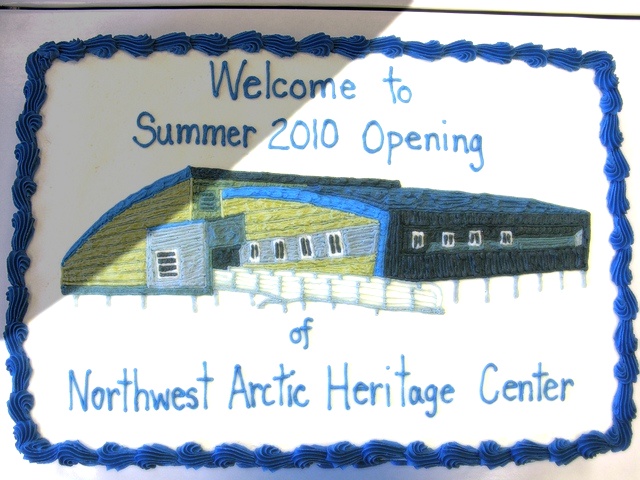 Welcome to
Summer 2010 Opening
of
Northwest Arctic Heritage Center